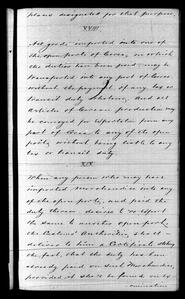 place designated for that purpose.
XVIII.
All goods, imported into one of
the open ports of Corea, on which
the duties have been paid, may be
transported into any part of Corea
without the payment, of any tax or
transit duty whatever, And
Articles of Corean production may
be conveyed for exportation from any
part of Corea to any of the open
ports, without being liable to any
tax or transit duty.
XIX.
When any person who may have
imported Merchandise into any
of the open ports, and paid the
duty thereon desires to re-export
the same to another open port,
the Customs Authorities shall
deliver to him a Certificate of
the fact, that the duty has been
already paid on such Merchandise,
provided it shall be found on ex-
amination